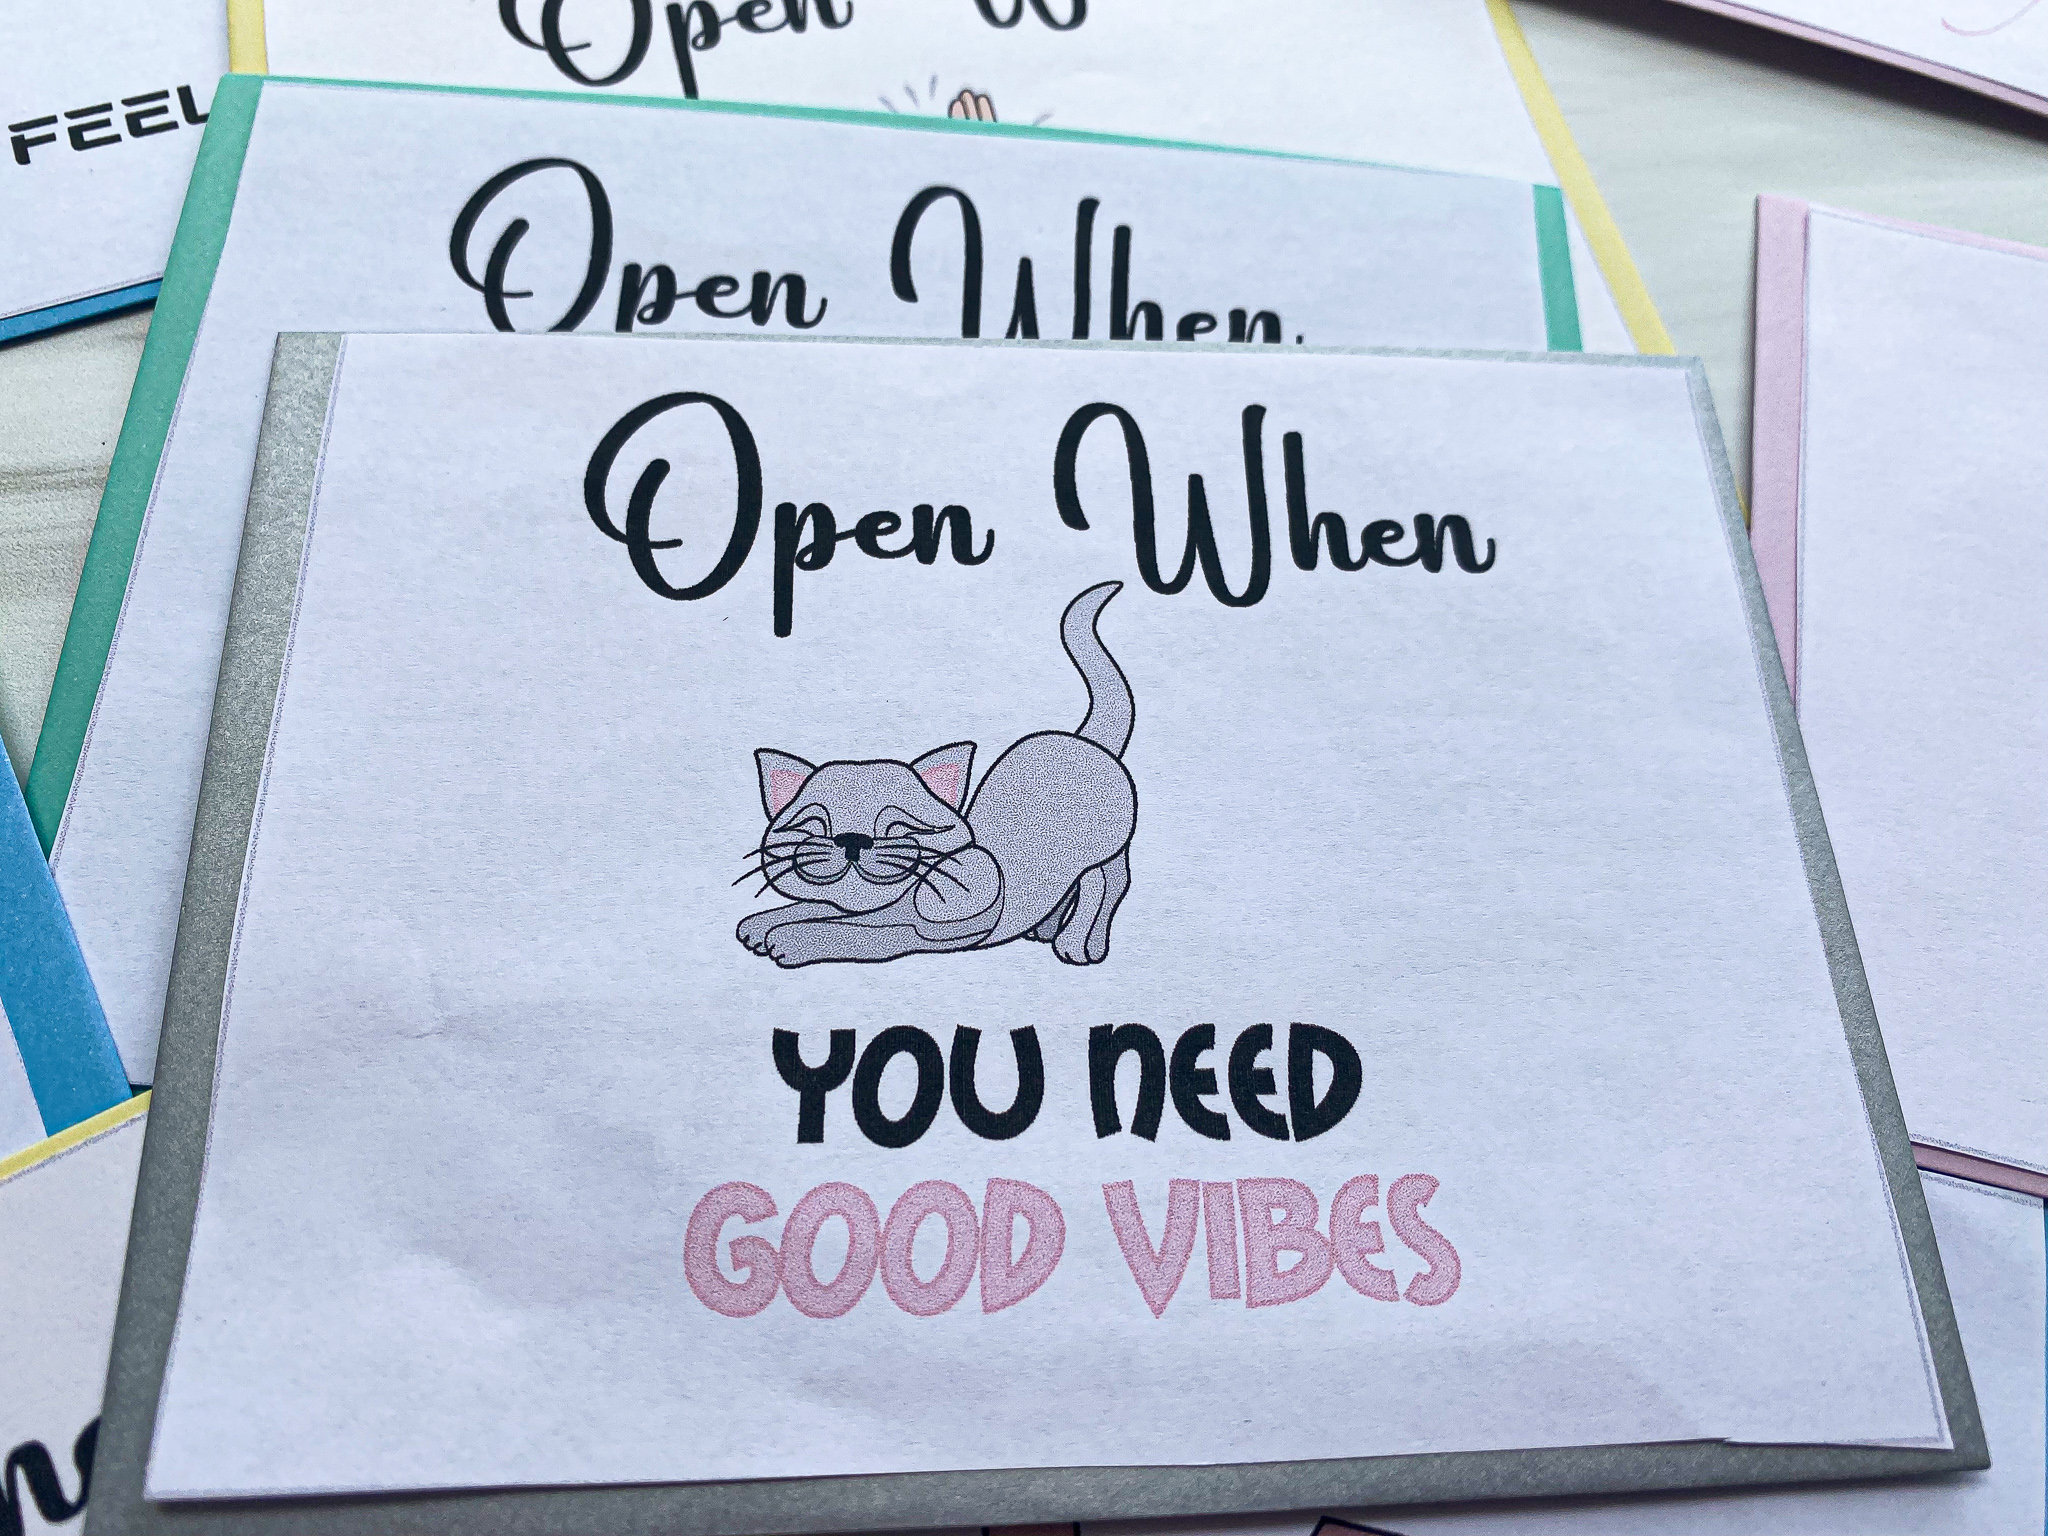 Open
FEEL
Open When
Open When
YOU NEED
GOOD VIBES